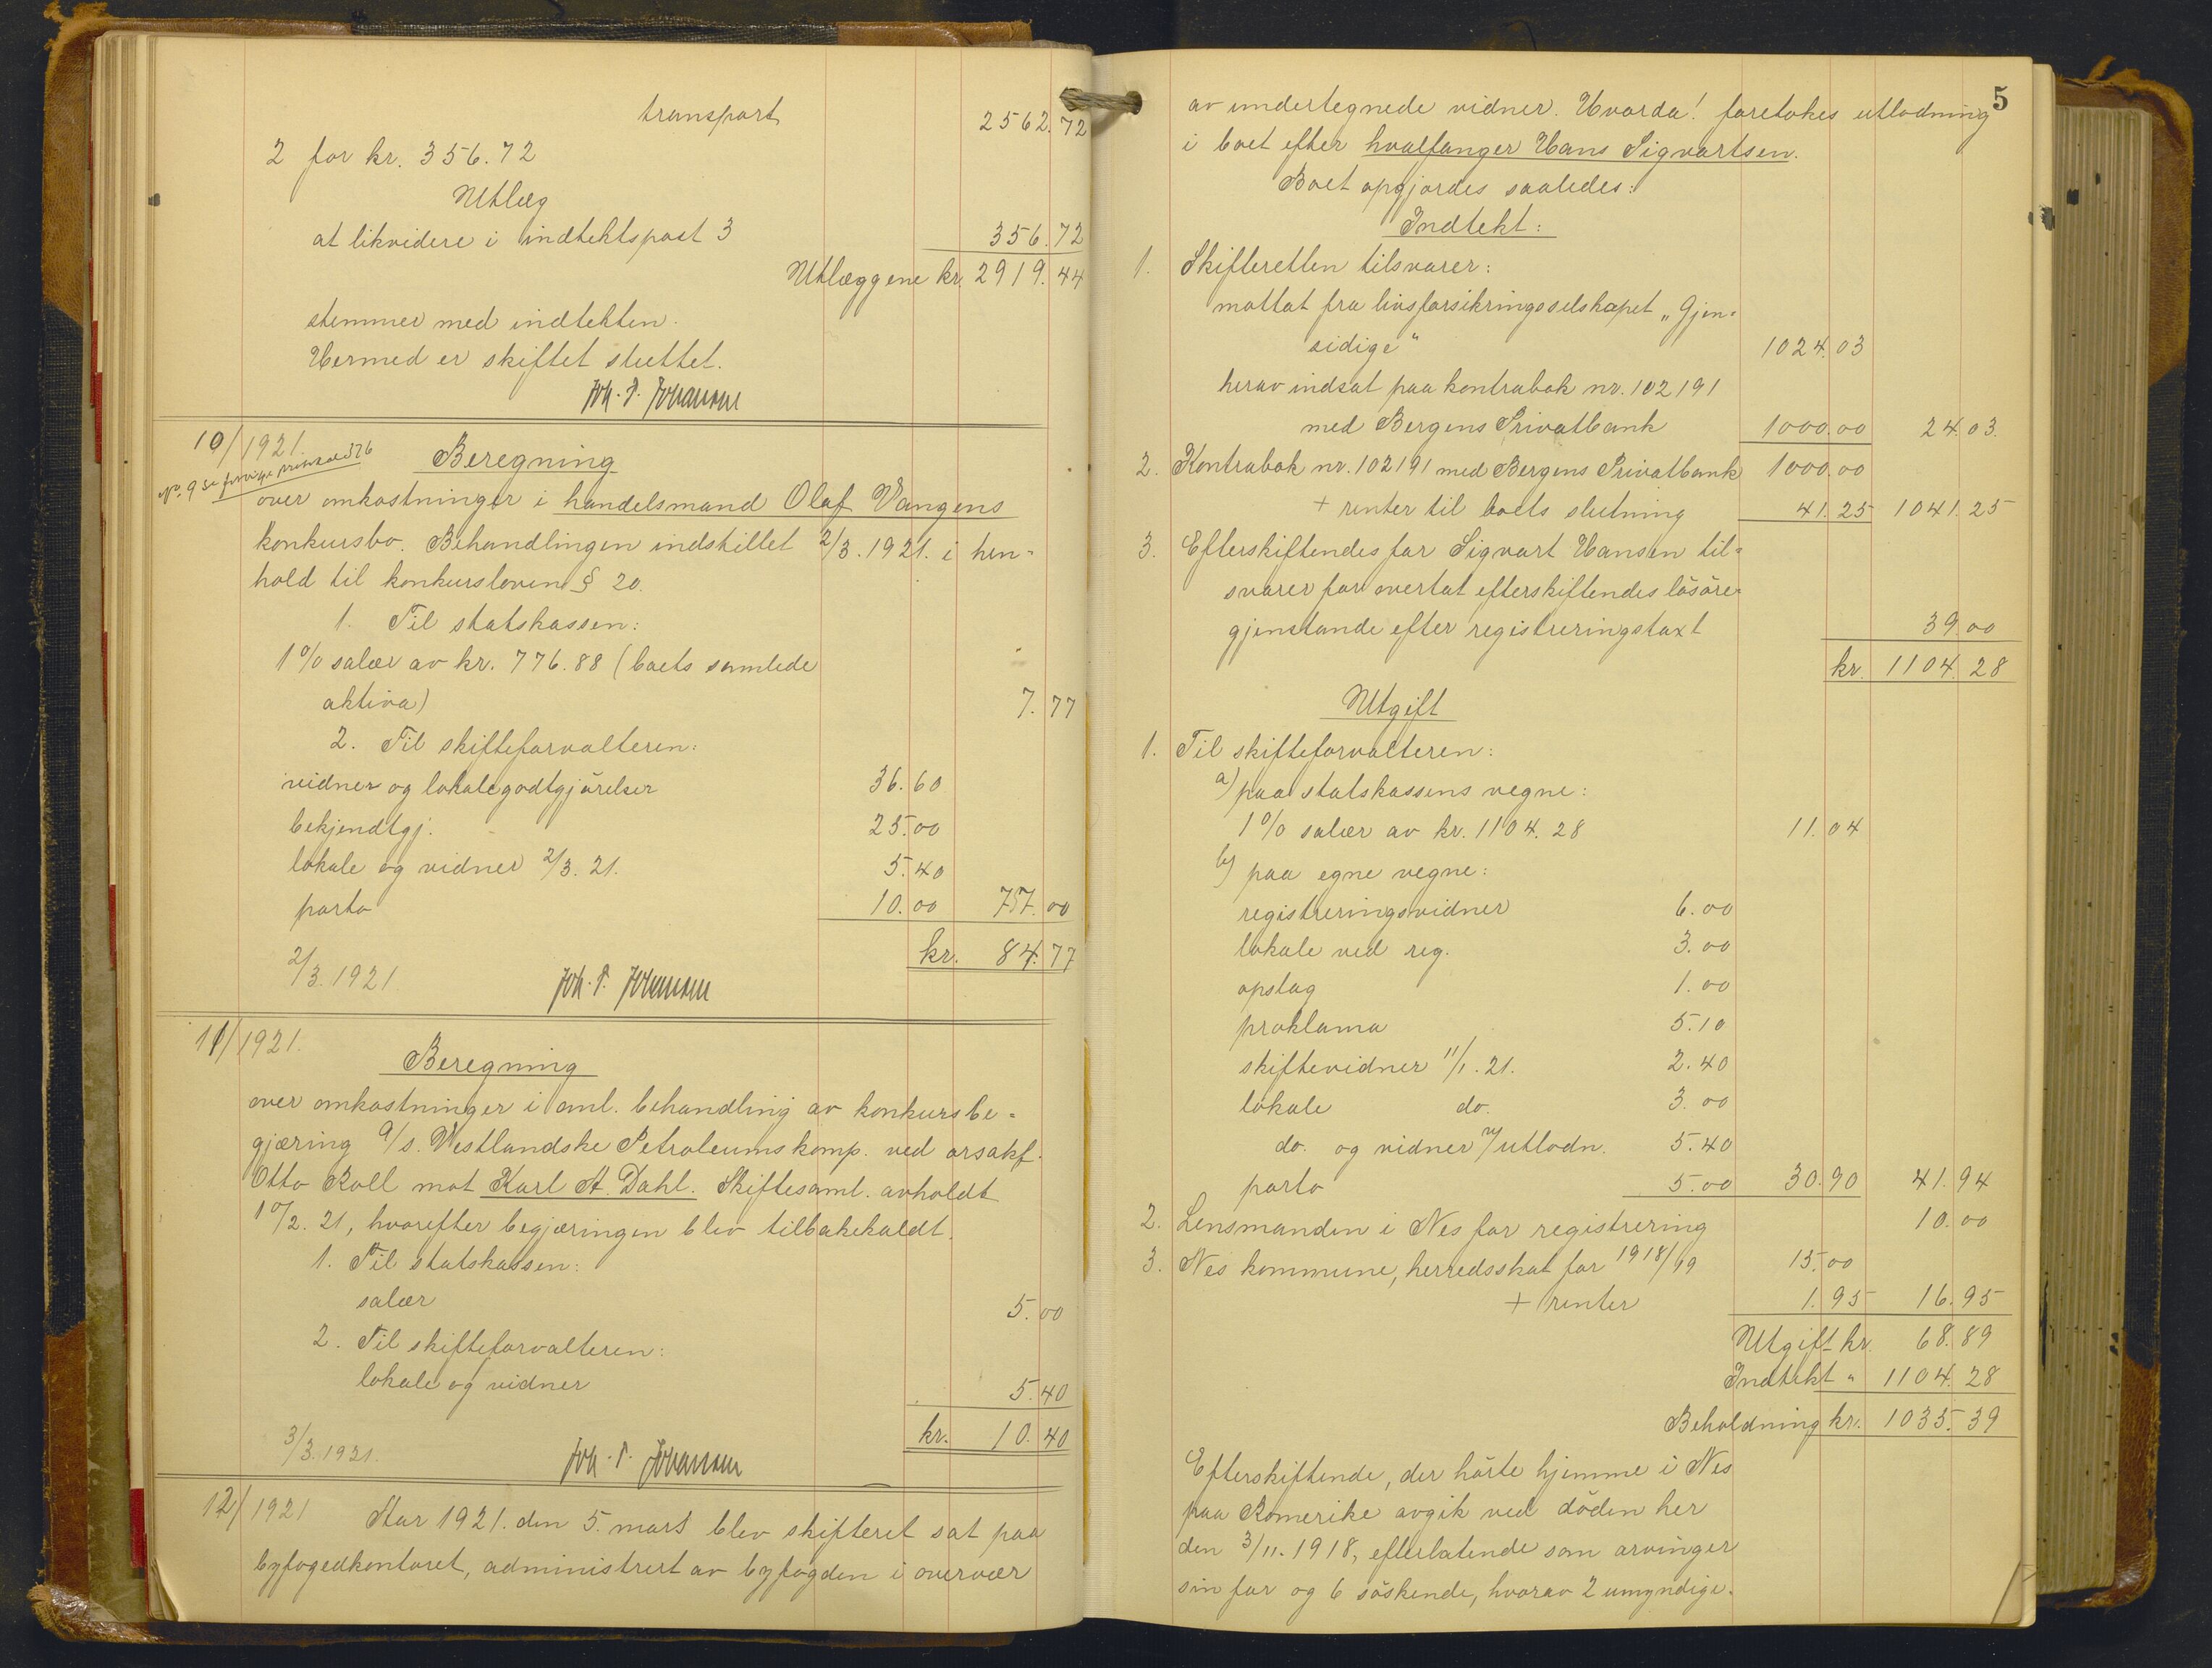 transport 2562.72
2 for kr. 356.72
Utlæg
at likvidere i indtektspost 3 356.72
Utlæggene kr. 2919.44
stemmer med indtekten.
Hermed er skiftet sluttet.
Joh. P. Johansen
10/1921. Beregning
No. 9 se forrige protokol 376
over omkostninger i handelsmand Olaf Vangens
konkursbo. Behandlingen indstillet 2/3. 1921. i hen=
hold til konkursloven § 20.
1. Til statskassen:
1% salær av kr. 776.88 (boets samlede
aktiva) 7.77
2. Til skifteforvalteren:
vidner og lokalegodtgjörelser 36.60
bekjendtgj. 25.00
lokale og vidner 2/3. 21. 5.40
porto 10.00 77.00
kr. 84.77
2/3. 1921. Joh. P. Johansen
11/1921.
Beregning
over omkostninger i anl. behandling av konkursbe=
gjæring a/s. Vestlandske Petroleumskomp. ved orsakf.
Otto Roll mot Karl A. Dahl. Skiftesaml. avholdt
10/2. 21, hvorefter begjæringen blev tilbakekaldt.
1. Til statskassen:
salær 5.00
2. Til skifteforvalteren:
lokale og vidner 5.40
kr. 10.40
3/3. 1921. Joh. P. Johansen
12/1921 Aar 1921. den 5. mars blev skifteret sat paa
byfogedkontoret, administrert av byfogden i overvær
5
av undertegnede vidner. Hvorda! foretokes utlodning
i boet efter hvalfanger Hans Sigvartsen.
Boet opgjordes saaledes:
Indtekt:
1. Skifteretten tilsvarer:
mottat fra livsforsikringsselskapet "Gjen=
sidige" 1024.03
herav indsat paa kontrabok nr. 102191
med Bergens Privatbank 1000.00 24.03.
2. Kontrabok nr. 102191 med Bergens Privatbank 1000.00
+ renter til boets slutning 41.25 1041.25
3. Efterskiftendes far Sigvart Hansen til=
svarer for overtat efterskiftendes lösöre=
gjenstande efter registreringstaxt 39.00
kr. 1104.28
Utgift
1. Til skifteforvalteren:
a) paa statskassens vegne:
1% salær av kr. 1104.28 11.04
b) paa egne vegne:
registreringsvidner 6.00
lokale ved reg. 3.00
opslag 1.00
proklama 5.10
skiftevidner 11/1. 21. 2.40
lokale do. 3.00
do. og vidner v/utlodn. 5.40
porto 5.00 30.90 41.94
2. Lensmanden i Nes for registrering 10.00
3. Nes kommune, herredsskat for 1918/19 15.00
+ renter 1.95 16.95
Utgift kr. 68.89
Indtekt " 1104.28
Beholdning kr. 1035.39
Efterskiftende, der hörte hjemme i Nes
paa Romerike avgik ved döden her
den 3/11. 1918, efterlatende som arvinger
sin far og 6 söskende, hvorav 2 umyndige.